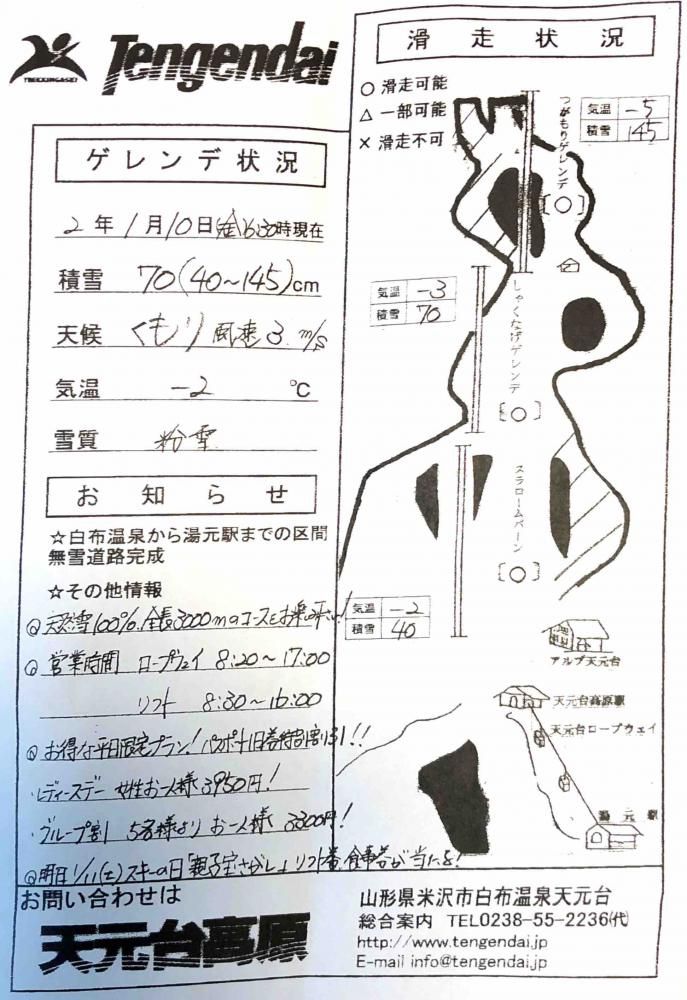 TREKKINGASKI
Tengendai
ゲレンデ状況
2年1月10日(金)6:30時現在
積雪 70(40~145)cm
天候 くもり 風速3 m/s
気温 -2 ℃
雪質 粉雪
お知らせ
☆白布温泉から湯元駅までの区間
無雪道路完成
☆その他情報
◎天然雪100%、全長3000mのコースをお楽しみ下さい!
◎営業時間 ロープウェイ 8:20~17:00
リフト 8:30~16:00
◎お得な平日限定プラン!パスポート1日券特別割引!!
・レディースデー 女性お一人様3950円!
・グループ割 5名様より お一人様 3300円!
◎明日1/11(土)スキーの日「親子宝さがし」リフト券、食事券が当たる!
滑走状況
○ 滑走可能
△ 一部可能
× 滑走不可
気温 -5
積雪 145
つがもりゲレンデ
[○]
気温 -3
積雪 70
しゃくなげゲレンデ
[○]
スラロームバーン
[○]
気温 -2
積雪 40
アルブ天元台
天元台高原駅
天元台ロープウェイ
湯元駅
お問い合わせは
天元台高原
山形県米沢市白布温泉天元台
総合案内 TEL0238-55-2236(代)
http://www.tengendai.jp
E-mail info@tengendai.jp